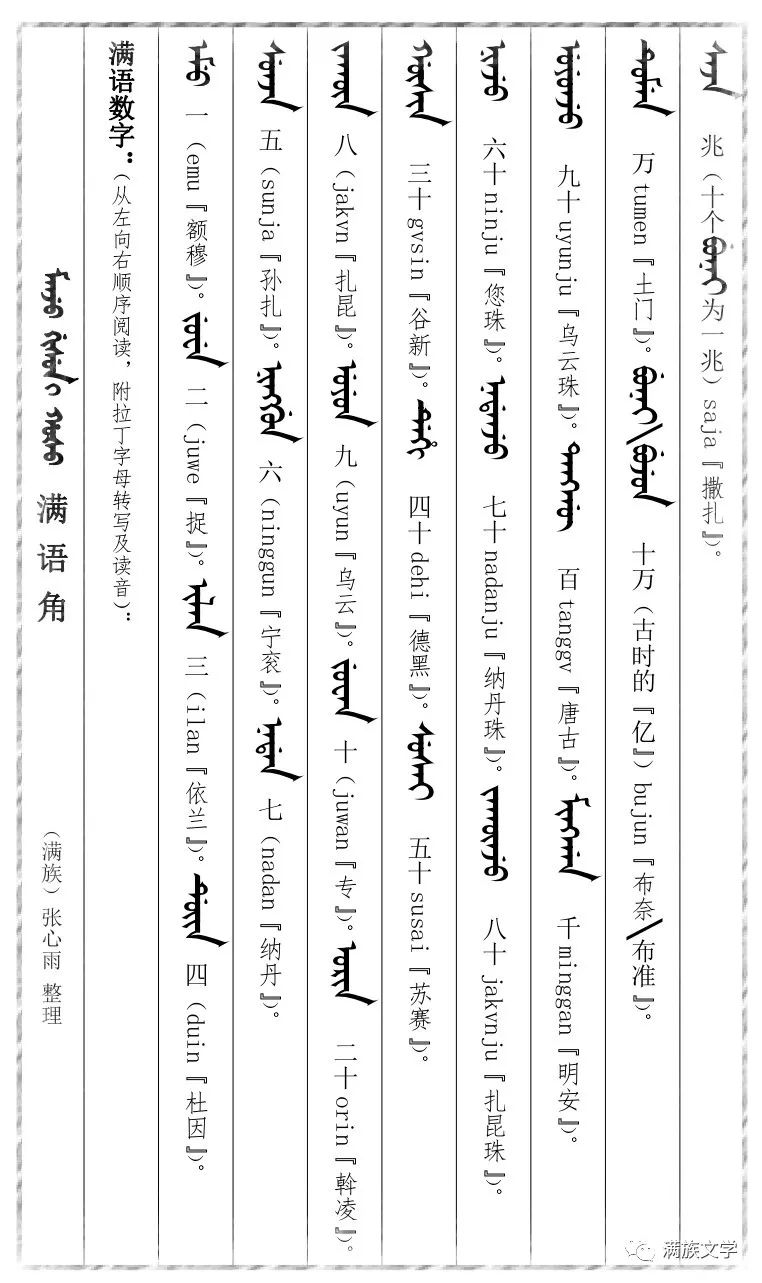 ᠮᠠᠨᠵᡠ ᡤᡳᠰᡠᠨ ᡳ ᡥᠣᡧᠣ 满语角 （满族）张心雨 整理
满语数字：（从左向右顺序阅读，附拉丁字母转写及读音）：
ᡝᠮᡠ 一（emu『额穆』）。ᠵᡠᠸᡝ 二（juwe『捉』）。ᡳᠯᠠᠨ 三（ilan『依兰』）。ᡩᡠᡳᠨ 四（duin『杜因』）。
ᠰᡠᠨᠵᠠ 五（sunja『孙扎』）。ᠨᡳᠩᡤᡠᠨ 六（ninggun『宁衮』）。ᠨᠠᡩᠠᠨ 七（nadan『纳丹』）。
ᠵᠠᡴᡡᠨ 八（jakvn『扎昆』）。ᡠᠶᡠᠨ 九（uyun『乌云』）。ᠵᡠᠸᠠᠨ 十（juwan『专』）。ᠣᡵᡳᠨ 二十orin『斡凌』）。
ᡤᡡᠰᡳᠨ 三十gvsin『谷新』）。ᡩᡝᡥᡳ 四十dehi『德黑』）。ᠰᡠᠰᠠᡳ 五十susai『苏赛』）。
ᠨᡳᠨᠵᡠ 六十ninju『您珠』）。ᠨᠠᡩᠠᠨᠵᡠ 七十nadanju『纳丹珠』）。ᠵᠠᡴᡡᠨᠵᡠ 八十 jakvnju『扎昆珠』）。
ᡠᠶᡠᠨᠵᡠ 九十uyunju『乌云珠』）。ᡨᠠᠩᡤᡡ 百tanggv『唐古』）。ᠮᡳᠩᡤᠠᠨ 千minggan『明安』）。
ᡨᡠᠮᡝᠨ 万tumen『土门』）。ᠪᡠᠨᠠᡳ/ᠪᡠᠵᡠᠨ 十万（古时的『亿』）bujun『布奈/布准』）。
ᠰᠠᠵᠠ 兆（十个ᠪᡠᠨᠠᡳ为一兆）saja『撒扎』）。
满族文学